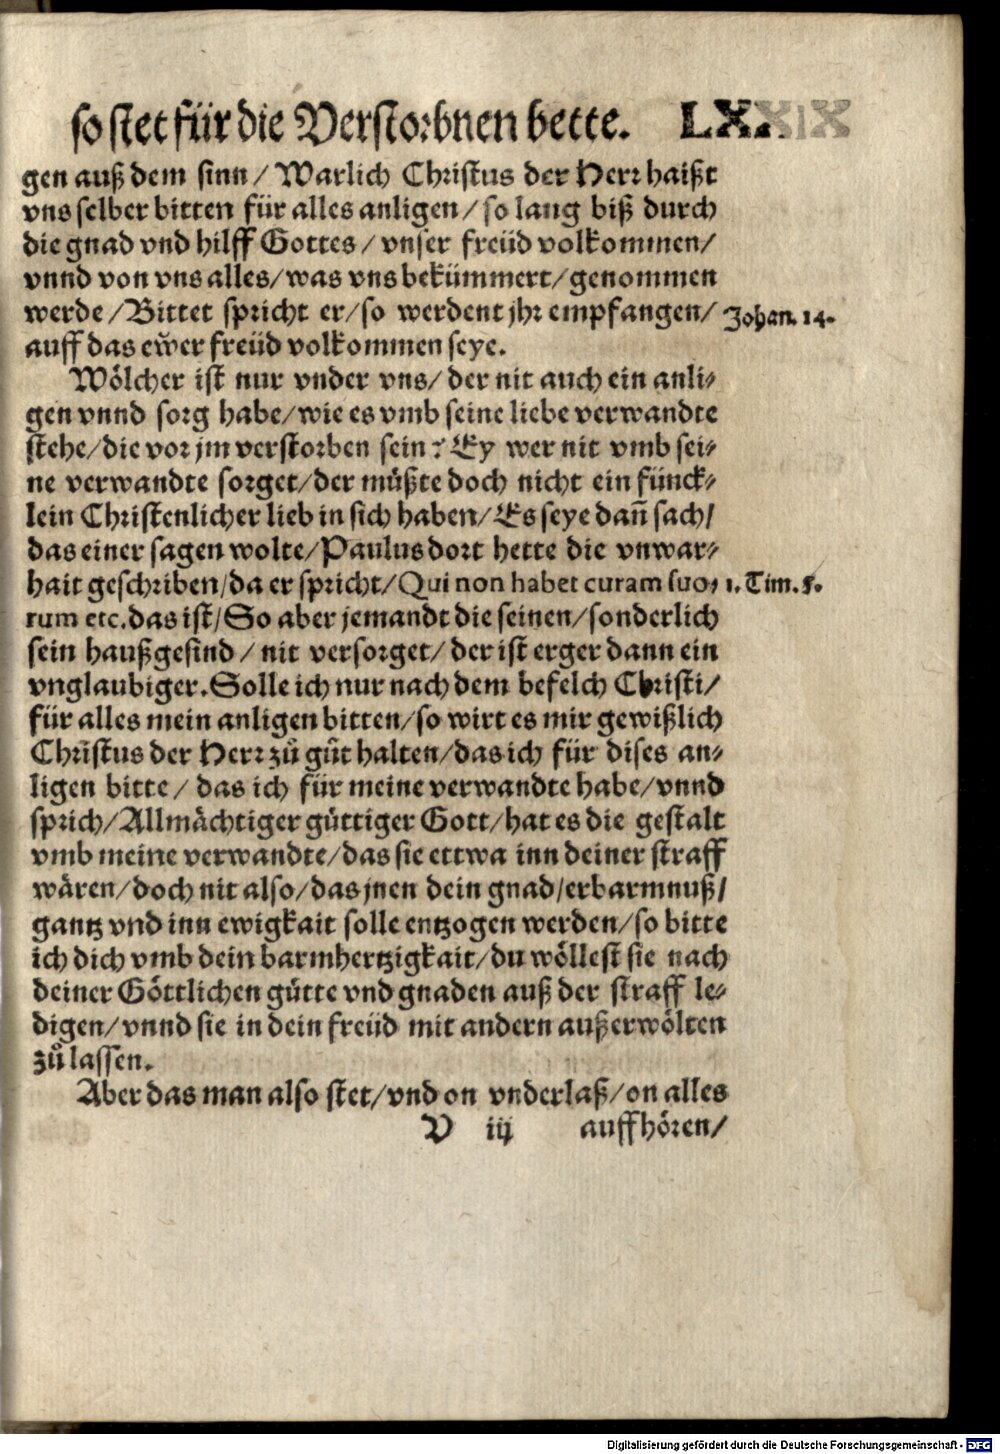 so stet für die Verstorbnen bette. LXXIX
gen auß dem sinn / Warlich Christus der Herr haißt
vns selber bitten für alles anligen / so lang biß durch
die gnad vnd hilff Gottes / vnser freüd volkommen /
vnnd von vns alles / was vns bekümmert / genommen
werde / Bittet spricht er / so werdent jhr empfangen / Johan. 14.
auff das eẅer freüd volkommen seye.
Wölcher ist nur vnder vns / der nit auch ein anli⸗
gen vnnd sorg habe / wie es vmb seine liebe verwandte
stehe / die vor jm verstorben sein? Ey wer nit vmb sei⸗
ne verwandte sorget / der müßte doch nicht ein fünck⸗
lein Christenlicher lieb in sich haben / Es seye dañ sach /
das einer sagen wolte / Paulus dort hette die vnwar⸗
hait geschriben / da er spricht / Qui non habet curam suo⸗ 1. Tim. 5.
rum etc. das ist / So aber jemandt die seinen / sonderlich
sein haußgesind / nit versorget / der ist erger dann ein
vnglaubiger. Solle ich nur nach dem befelch Christi /
für alles mein anligen bitten / so wirt es mir gewißlich
Christus der Herr zů gůt halten / das ich für dises an⸗
ligen bitte / das ich für meine verwandte habe / vnnd
sprich / Allmächtiger güttiger Gott / hat es die gestalt
vmb meine verwandte / das sie ettwa inn deiner straff
wären / doch nit also / das jnen dein gnad / erbarmnuß /
gantz vnd inn ewigkait solle entzogen werden / so bitte
ich dich vmb dein barmhertzigkait / du wöllest sie nach
deiner Göttlichen gütte vnd gnaden auß der straff le⸗
digen / vnnd sie in dein freüd mit andern außerwölten
zů lassen.
Aber das man also stet / vnd on vnderlaß / on alles
V iij auffhören /
Digitalisierung gefördert durch die Deutsche Forschungsgemeinschaft - DFG